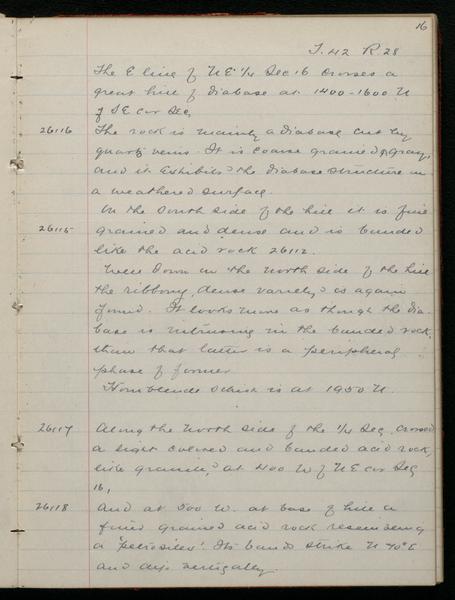 16
T. 42 R 28
The E line of N E 1/4 Sec 16 crosses a
great hill of diabase at 1400-1600 N
of S E cor Sec,
26116 The rock is mainly a diabase cut by
quartz veins. It is coarse grained & gray,
and it exhibits the diabase structure on
a weathered surface.
On the south side of the hill it is fine
26115 grained and dense and is banded
like the acid rock 26112.
Well down on the north side of the hill
the ribbony, dense variety is again
found. It looks more as though the dia-
base is intrusing in the banded rock,
than that latter is a peripheral
phase of former
Hornblende schist is at 1950 N.
26117 Along the north side of the 1/4 Sec. crossed
a light colored and banded acid rock,
like granite, at 400 W of N E cor Sec
16,
26118 and at 500 W. at base of hill a
fine grained acid rock resembling
a "petrosilex". Its bands strike N 70° E
and dip vertically.